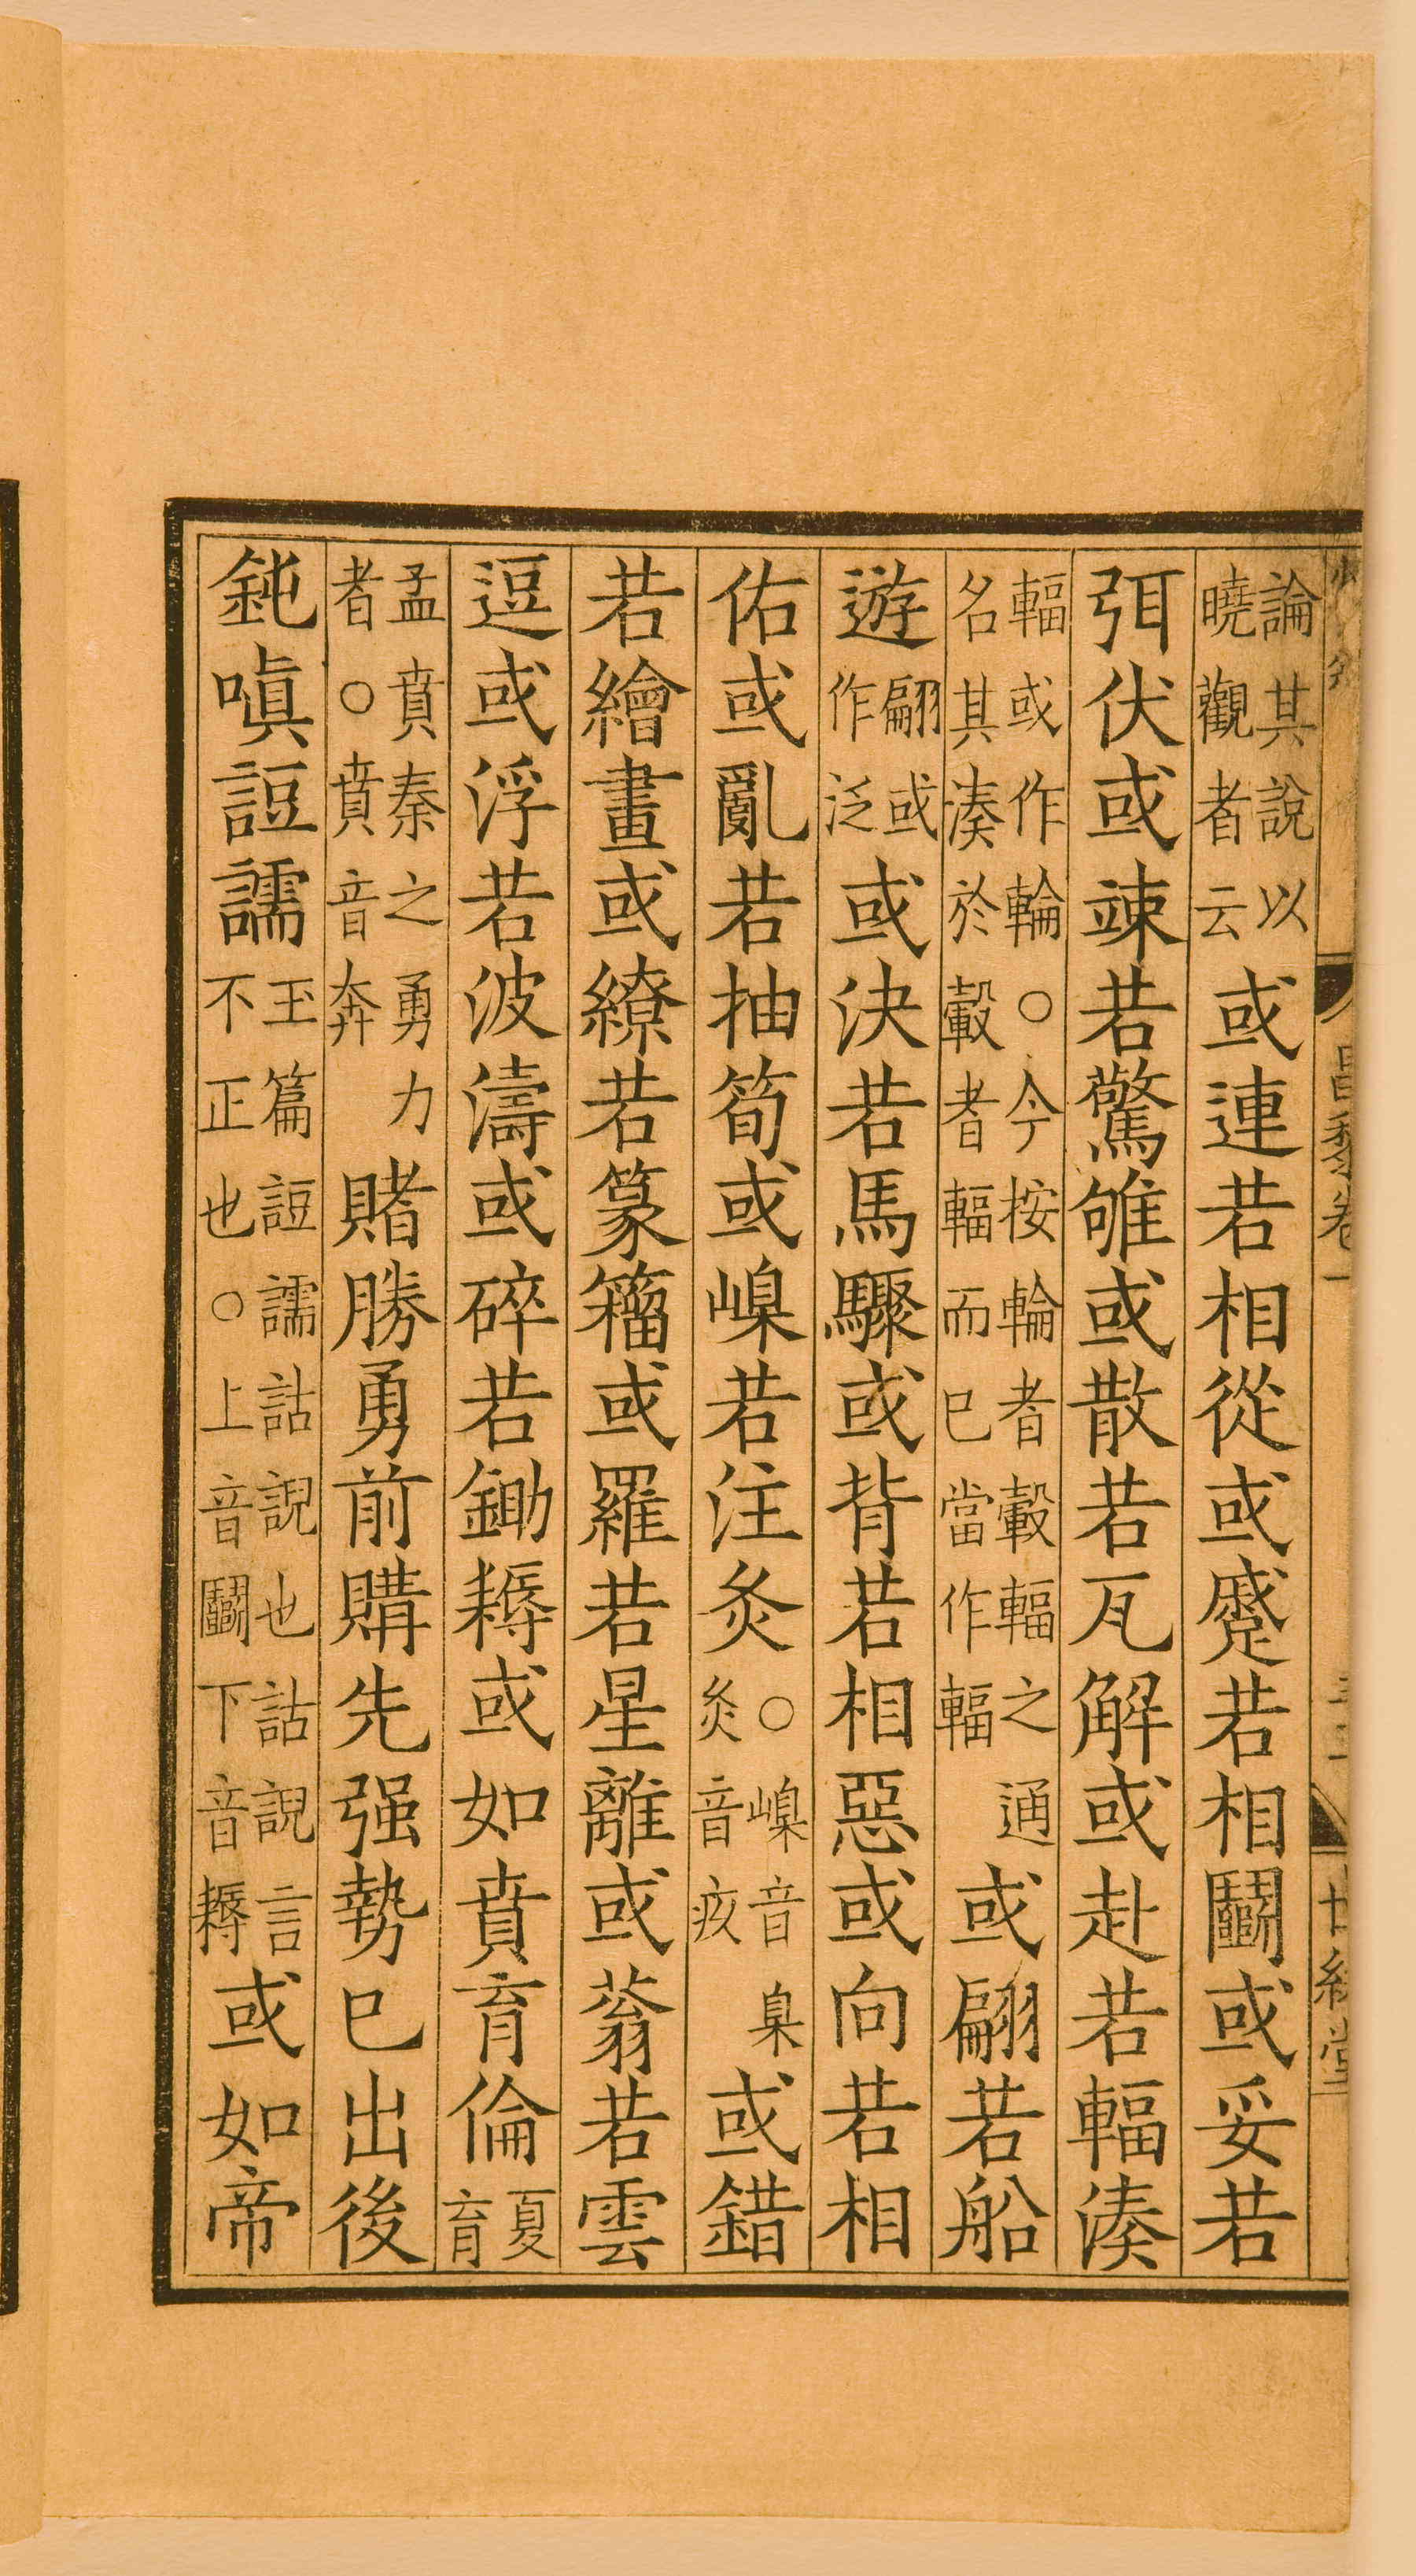 論其說以曉觀者云或連若相從或蹙若相鬭或妥若
弭伏或竦若驚雊或散若瓦解或赴若輻湊
輻或作輪○今按輪者轂輻之通名其湊於轂者輻而已當作輻或翩若船
遊翩或作泛或決若馬驟或背若相惡或向若相
佑或亂若抽筍或嵲若注灸○嵲音臬灸音疚或錯
若繪畫或繚若篆籀或羅若星離或蓊若雲
逗或浮若波濤或碎若鋤耨或如賁育倫夏育
孟賁秦之勇力者○賁音奔賭勝勇前購先强勢已出後
鈍嗔䛠譳玉篇䛠譳詀䛏也詀䛏言不正也○上音鬭下音耨或如帝
昌黎卷一